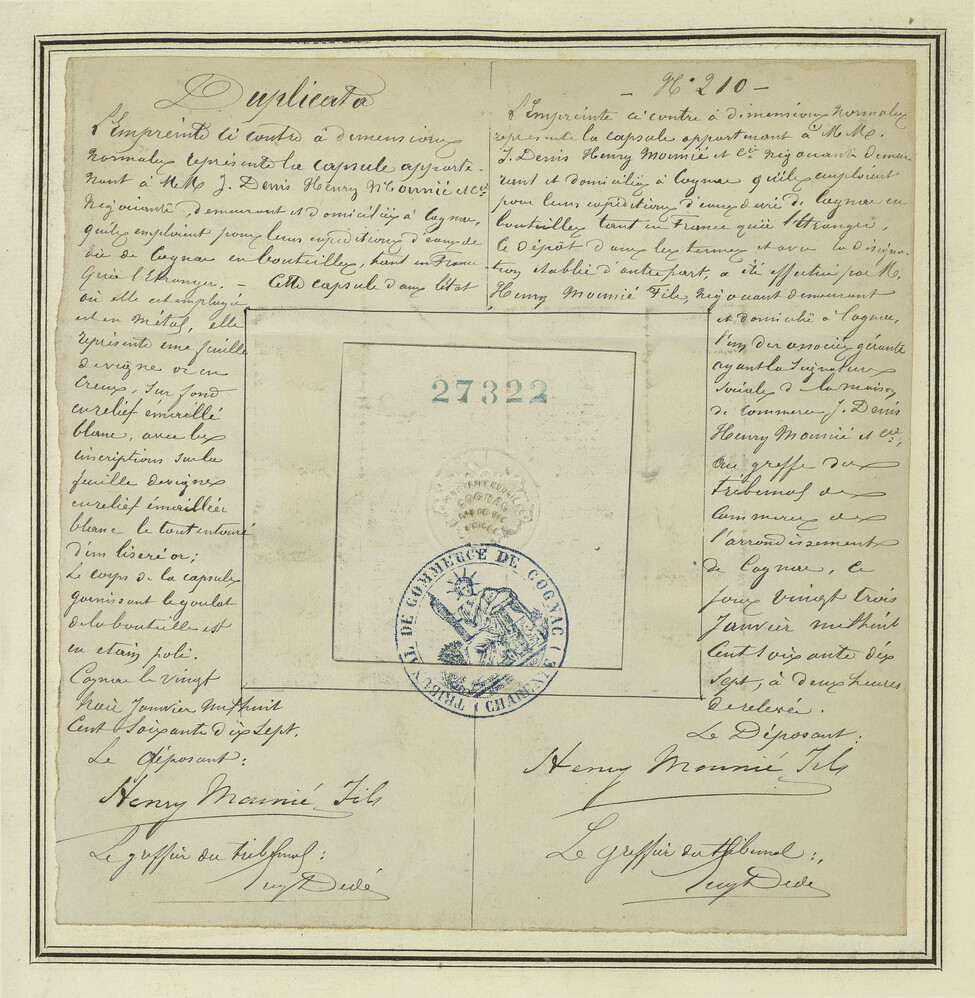 Duplicata
L'Empreinte ci contre à dimensions
normales représente la capsule apparte-
nant à MM J. Denis Henry Mounié et Cie
négociants, demeurant et domiciliés à Cognac,
qu'ils emploient pour leurs expéditions d'eaux de
vie de Cognac en bouteilles, tant en France
qu'à l'Etranger. —
Cette capsule dans l'état
où elle est employée
est en métal, elle
représente une feuille
de vigne or en
creux, sur fond
en relief émaillé
blanc, avec les
inscriptions sur la
feuille de vigne
en relief émaillées
blanc le tout entouré
d'un liseré or;
Le corps de la capsule
garnissant le goulot
de la bouteille est
en etain poli.
Cognac le vingt
trois Janvier mil huit
cent soixante dix sept.
Le déposant:
Henry Mounié Fils
Le greffier du tribunal:
— N° 210 —
L'Empreinte ci contre à dimensions normales
représente la capsule appartenant à MM.
J. Denis Henry Mounié et Cie négociants demeu-
rant et domiciliés à Cognac qu'ils emploient
pour leurs expéditions d'eaux de vie de Cognac en
bouteilles tant en France qu'à l'Etranger.
Ce dépôt dans les termes et avec la désigna-
tion établie d'autre part, a été effectué par M.
Henry Mounié Fils, négociant demeurant
et domicilié à Cognac,
l'un des associés gérants
ayant la signature
sociale de la maison
de commerce J. Denis
Henry Mounié et Cie,
au greffe du
tribunal de
Commerce de
l'arrondissement
de Cognac, ce
jour vingt trois
Janvier mil huit
cent soixante dix
sept, à deux heures
de relevée.
Le Déposant:
Henry Mounié Fils
Le greffier du tribunal:
27322
COGNAC
TRIBUNAL DE COMMERCE DE COGNAC (CHARENTE)